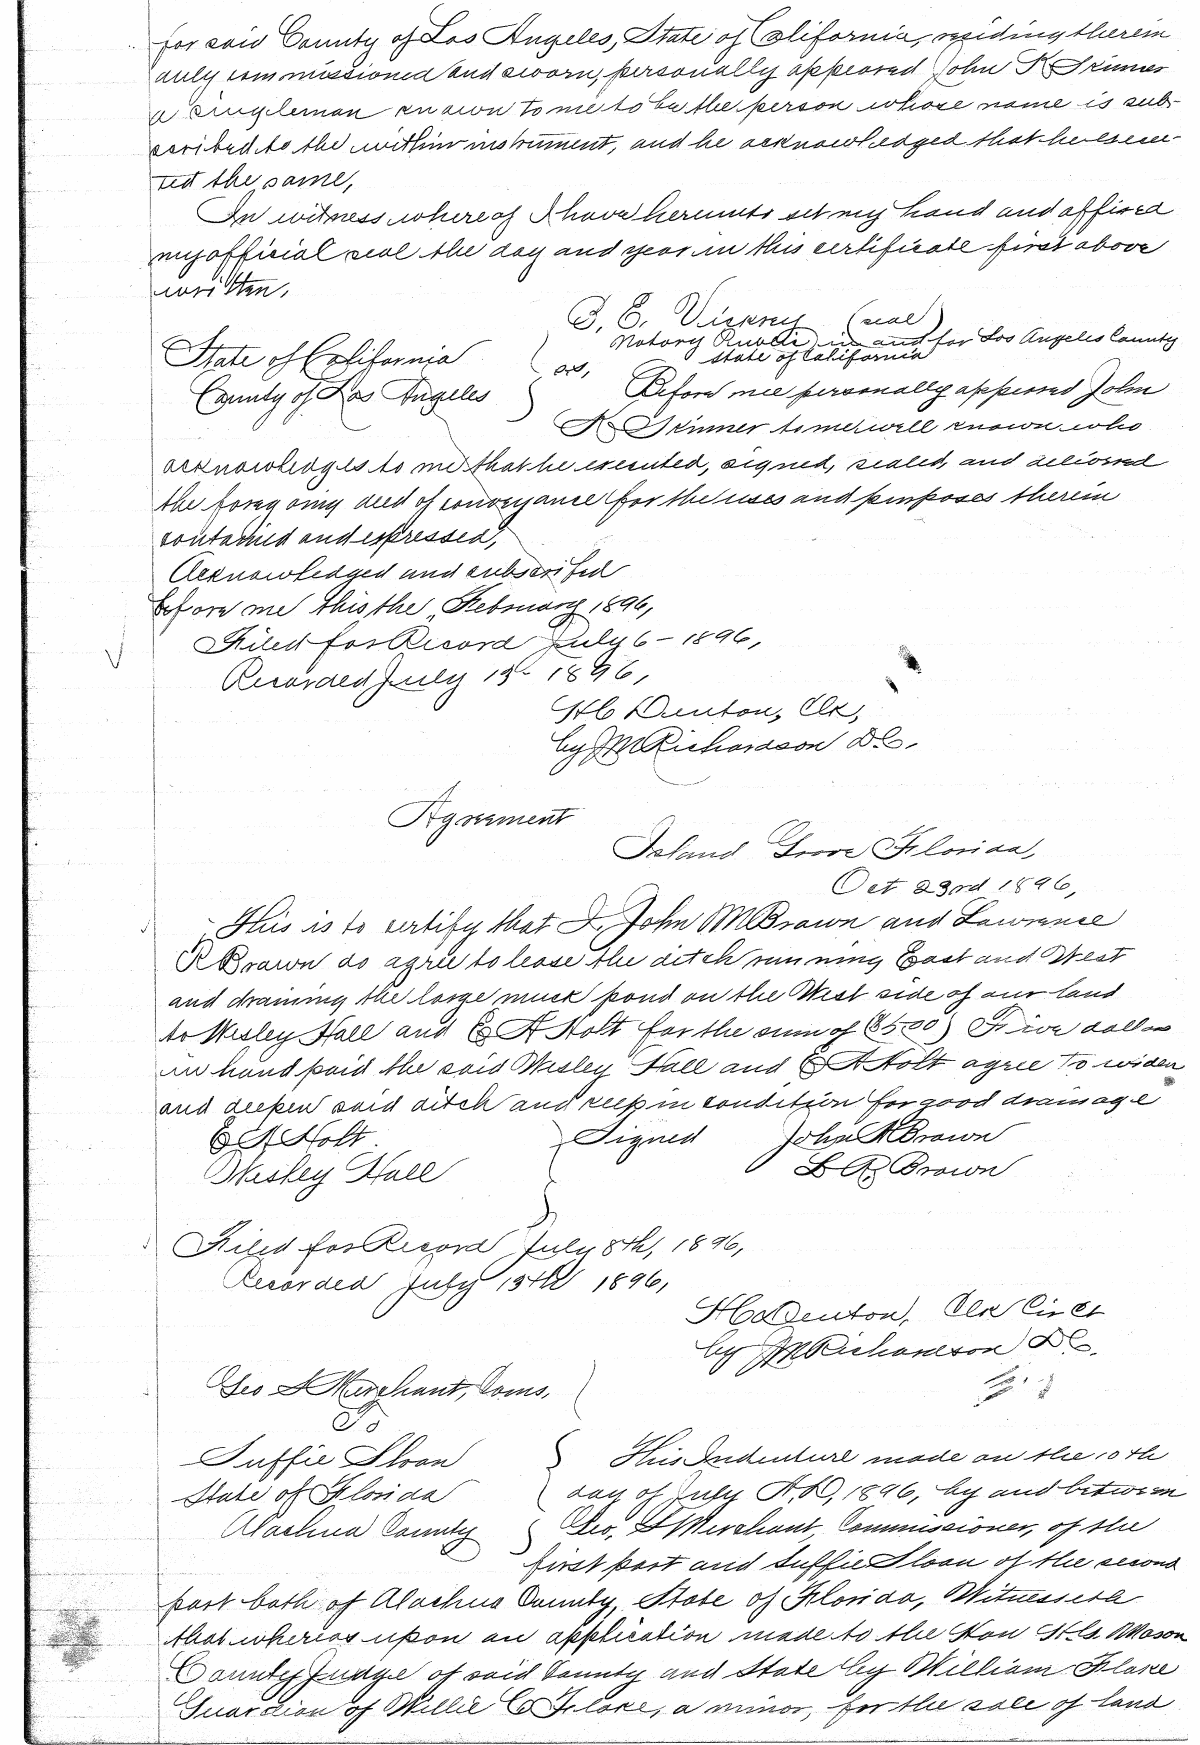 for said County of Los Angeles, State of California, residing therein
duly commissioned and sworn, personally appeared John K Skinner
a singleman known to me to be the person whose name is sub-
scribed to the within instrument, and he acknowledged that he execu-
ted the same,
In witness whereof I have hereunto set my hand and affixed
my official seal the day and year in this certificate first above
written,
E. Vickrey (seal)
Notary Public in and for Los Angeles County
state of California
State of California
County of Los Angeles
ss, Before me personally appeared John
K Skinner to me well known who
acknowledges to me that he executed, signed, sealed, and delivered
the foregoing deed of conveyance for the uses and purposes therein
contained and expressed,
Acknowledged and subscribed
before me this the February 1896,
Filed for Record July 6 - 1896,
Recorded July 13- 1896,
H C Denton, Clk,
by J M Richardson D.C.
Agreement
Island Grove Florida,
Oct 23rd 1896,
This is to certify that I, John M Brown and Lawrence
R Brown do agree to lease the ditch running East and West
and draining the large muck pond on the West side of our land
to Wesley Hall and E A Holt for the sum of ($5.00) Five dollars
in hand paid the said Wesley Hall and E A Holt agree to widen
and deepen said ditch and keep in condition for good drainage
E A Holt Signed John M Brown
Wesley Hall L R Brown
Filed for Record July 8th, 1896,
Recorded July 13th 1896,
H C Denton, Clk Circt
by J M Richardson D C.
Geo S Merchant, Coms,
To
Suffie Sloan
State of Florida
Alachua County
This Indenture made on the 10th
day of July A.D, 1896, by and between
Geo, S Merchant, Commissioner, of the
first part and Suffie Sloan of the second
part both of Alachua County, State of Florida, Witnesseth
that whereas upon an application made to the Hon H.G. Mason
County Judge of said County and State by William Flake
Guardian of Willie C Flake, a minor, for the sale of land